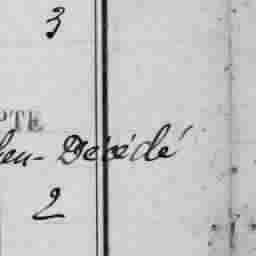 3
PTE
eu- Décédé
2